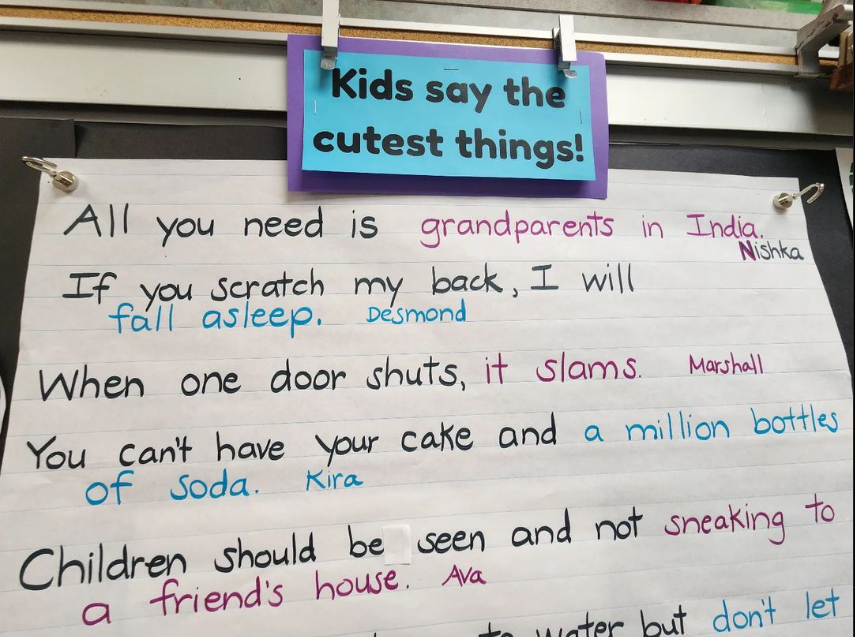 Kids say the
cutest things!
All you need is grandparents in India.
Nishka
If you scratch my back, I will
fall asleep. Desmond
When one door shuts, it slams. Marshall
You can't have your cake and a million bottles
of soda. Kira
Children should be seen and not sneaking to
a friend's house. Ava
to water but don't let